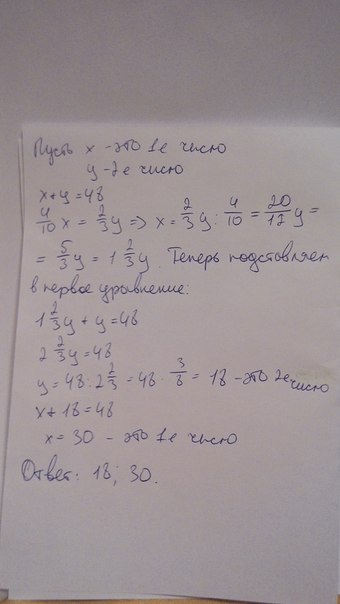 Пусть x - это 1е число
y - 2е число
x+y=48
4/10 x = 2/3 y => x = 2/3 y : 4/10 = 20/12 y =
= 5/3 y = 1 2/3 y. Теперь подстовляем
в первое уравнение:
1 2/3 y + y = 48
2 2/3 y = 48
y = 48 : 2 2/3 = 48 · 3/8 = 18 - это 2е число
x + 18 = 48
x = 30 - это 1е число
Ответ: 18; 30.